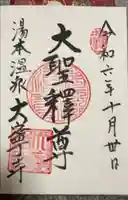 令和六年十月廿日
大聖釋尊
湯本温泉 大寧寺